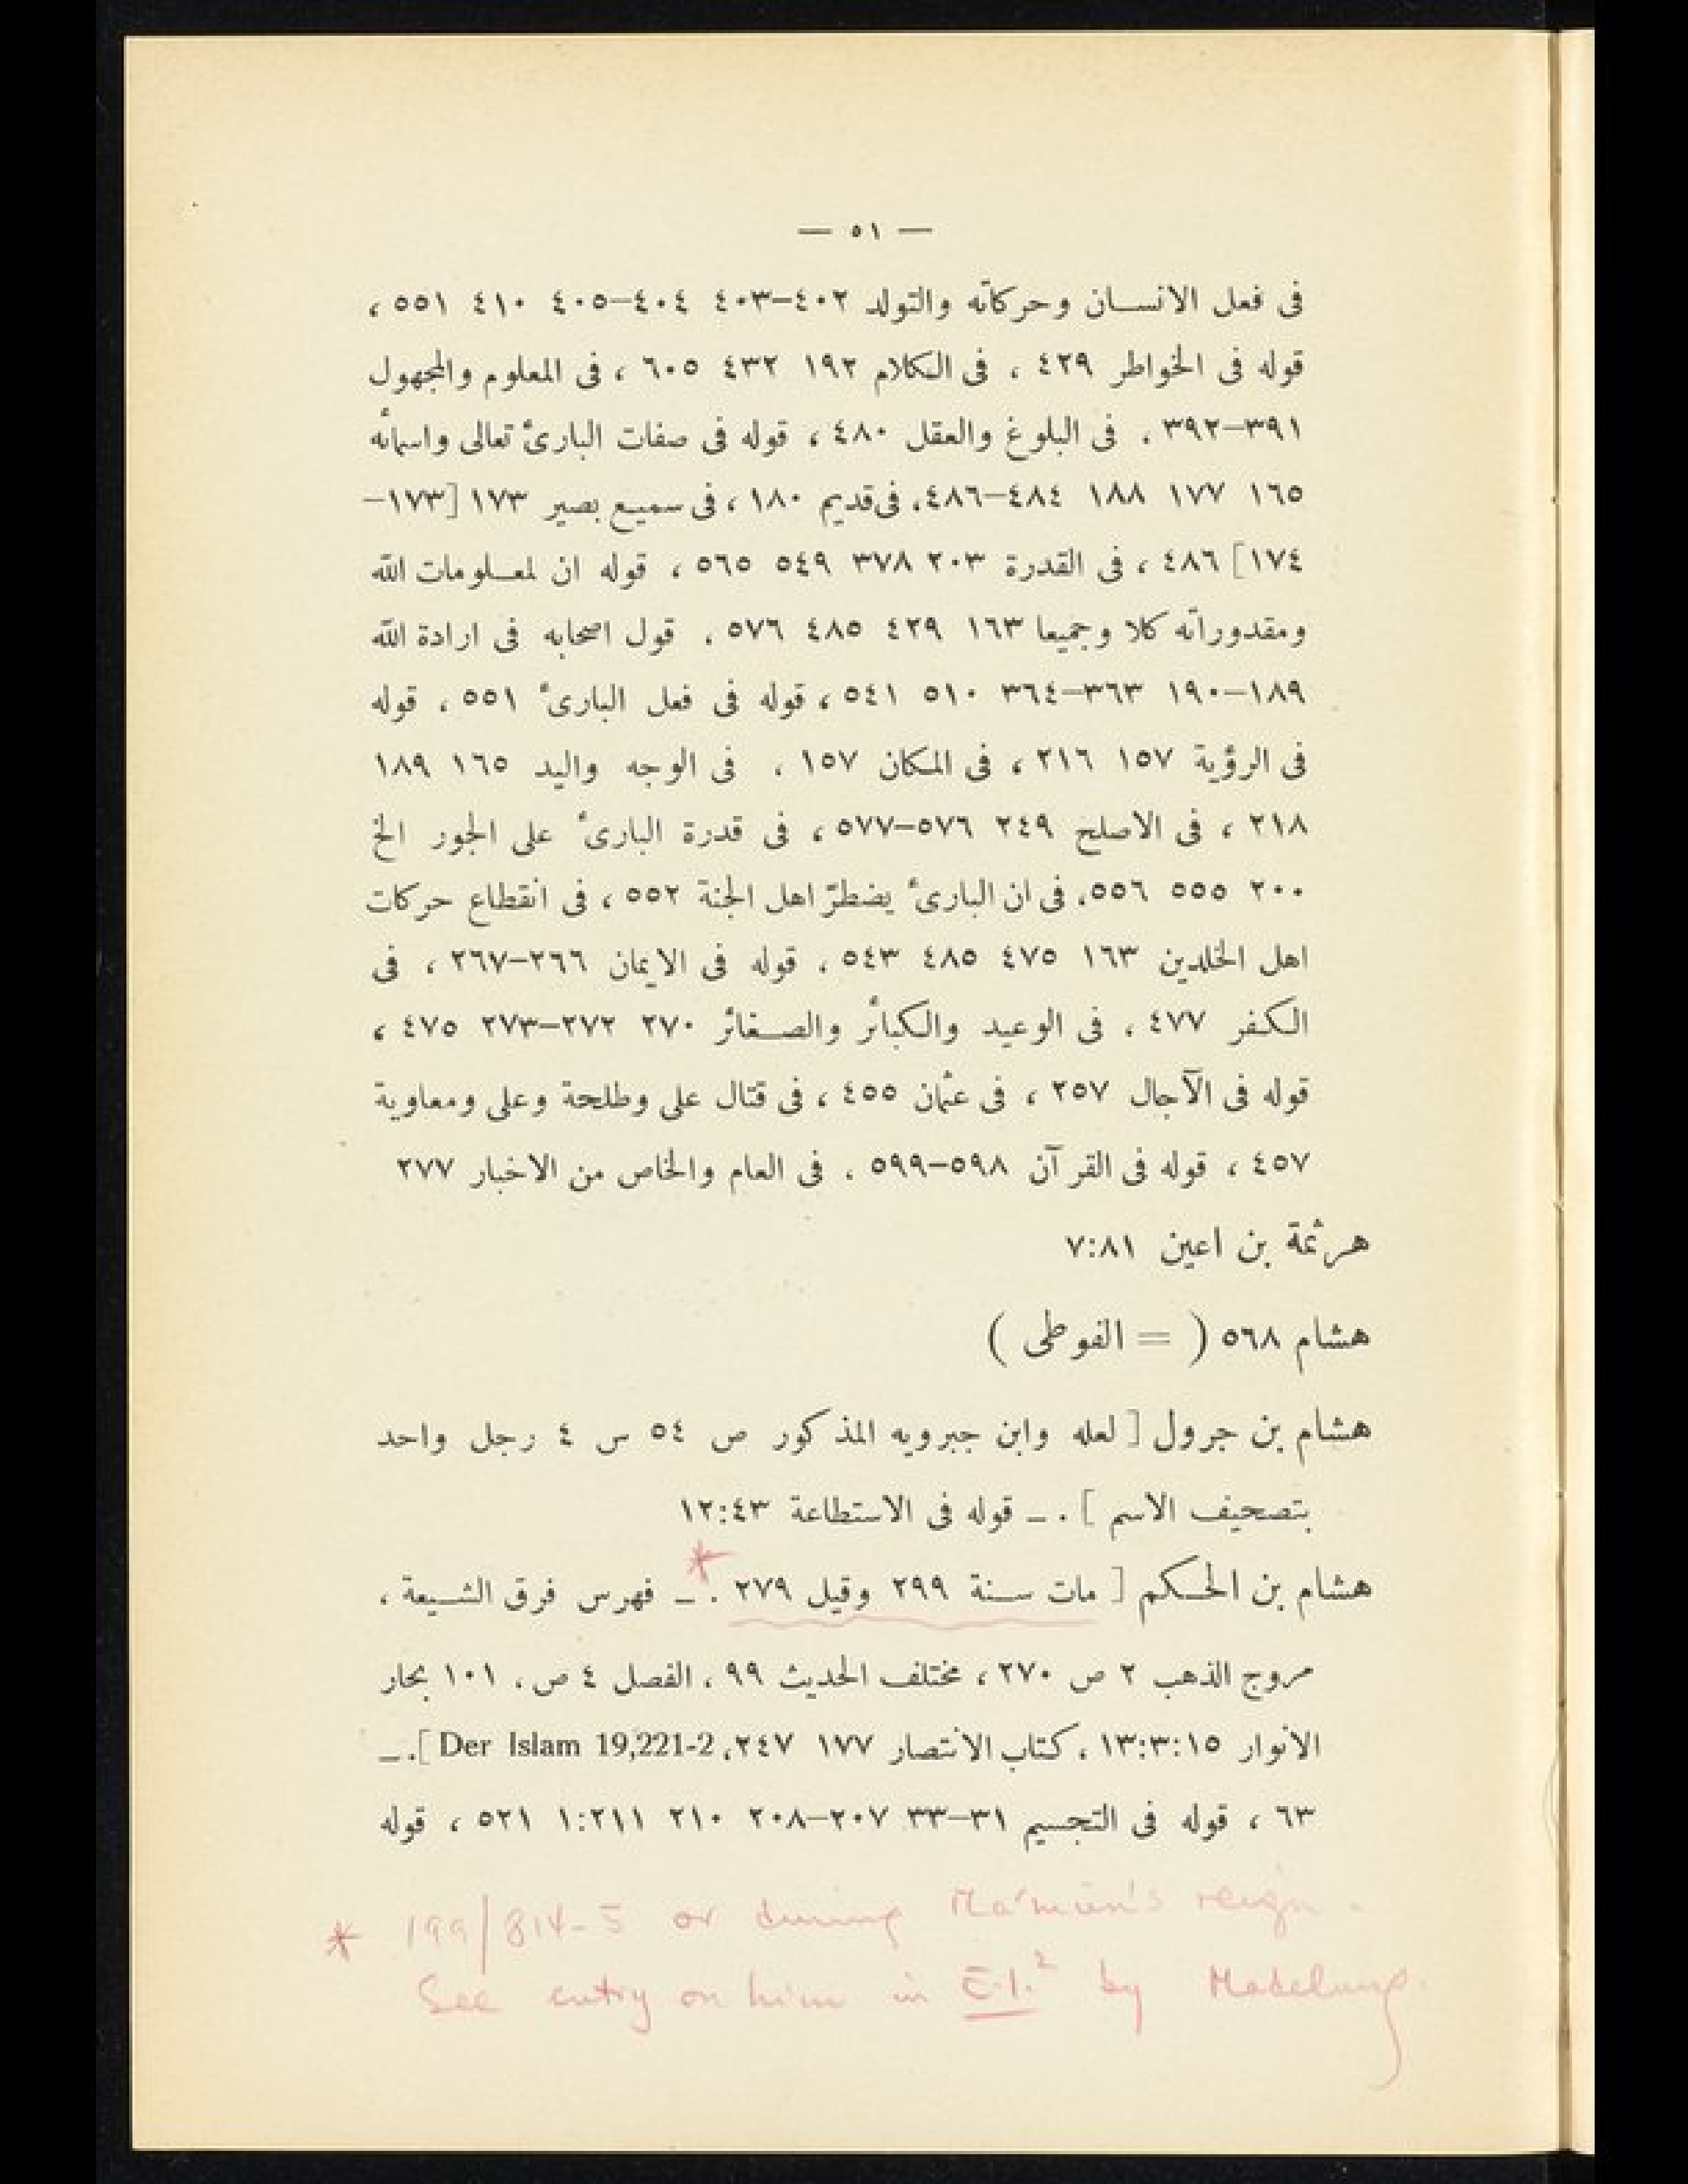 — ٥١ —
فى فعل الانسان وحركاته والتولد ٤٠٢–٤٠٣ ٤٠٤–٤٠٥ ٤١٠ ٥٥١ ،
قوله فى الخواطر ٤٢٩ ، فى الكلام ١٩٢ ٤٣٢ ٦٠٥ ، فى المعلوم والمجهول
٣٩١–٣٩٢ ، فى البلوغ والعقل ٤٨٠ ، قوله فى صفات البارئ تعالى واسمائه
١٦٥ ١٧٧ ١٨٨ ٤٨٤–٤٨٦ ، فى قديم ١٨٠ ، فى سميع بصير ١٧٣ [١٧٣–
١٧٤] ٤٨٦ ، فى القدرة ٢٠٣ ٣٧٨ ٥٤٩ ٥٦٥ ، قوله ان لمعلومات الله
ومقدوراته كلا وجميعا ١٦٣ ٤٢٩ ٤٨٥ ٥٧٦ ، قول اصحابه فى ارادة الله
١٨٩–١٩٠ ٣٦٣–٣٦٤ ٥١٠ ٥٤١ ، قوله فى فعل البارئ ٥٥١ ، قوله
فى الرؤية ١٥٧ ٢١٦ ، فى المكان ١٥٧ ، فى الوجه واليد ١٦٥ ١٨٩
٢١٨ ، فى الاصلح ٢٤٩ ٥٧٦–٥٧٧ ، فى قدرة البارئ على الجور الخ
٢٠٠ ٥٥٥ ٥٥٦ ، فى ان البارئ يضطرّ اهل الجنة ٥٥٢ ، فى انقطاع حركات
اهل الخلدين ١٦٣ ٤٧٥ ٤٨٥ ٥٤٣ ، قوله فى الايمان ٢٦٦–٢٦٧ ، فى
الكفر ٤٧٧ ، فى الوعيد والكبائر والصغائر ٢٧٠ ٢٧٢–٢٧٣ ٤٧٥ ،
قوله فى الآجال ٢٥٧ ، فى عثمان ٤٥٥ ، فى قتال على وطلحة وعلى ومعاوية
٤٥٧ ، قوله فى القرآن ٥٩٨–٥٩٩ ، فى العام والخاص من الاخبار ٢٧٧
هرثمة بن اعين ٧:٨١
هشام ٥٦٨ ( = الفوطى )
هشام بن جرول [ لعله وابن جبرويه المذكور ص ٥٤ س ٤ رجل واحد
بتصحيف الاسم ] . – قوله فى الاستطاعة ١٢:٤٣
هشام بن الحكم [ مات سنة ٢٩٩ وقيل ٢٧٩ . * – فهرس فرق الشيعة ،
مروج الذهب ٢ ص ٢٧٠ ، مختلف الحديث ٩٩ ، الفصل ٤ ص ، ١٠١ بحار
الانوار ١٣:٣:١٥ ، كتاب الانتصار ١٧٧ ٢٤٧ ، Der Islam 19,221-2 ] . –
٦٣ ، قوله فى التجسيم ٣١–٣٣ ٢٠٧–٢٠٨ ٢١٠ ١:٢١١ ٥٢١ ، قوله
* 199/814-5 or during Ma'mūn's reign.
See entry on him in E.I.² by Madelung.